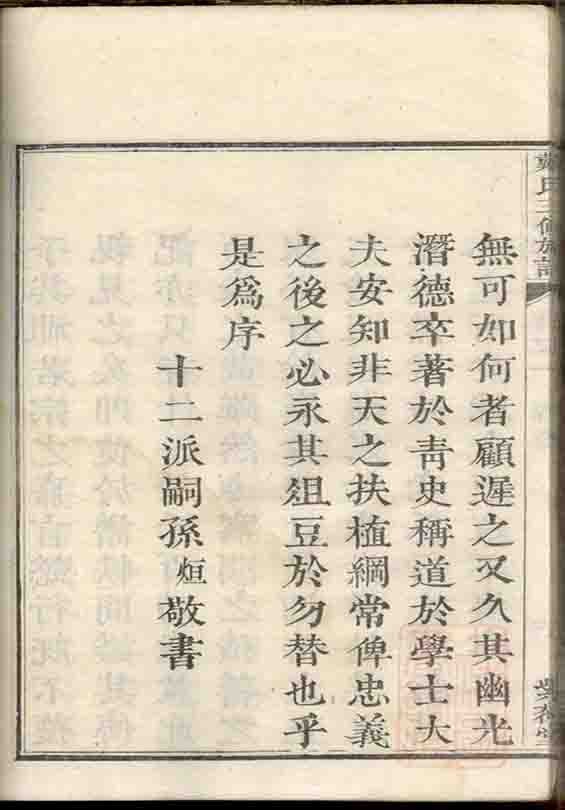 氏三修族譜
無可如何者顧遲之又久其幽光
潛德卒著於靑史稱道於學士大
夫安知非天之扶植綱常俾忠義
之後之必永其俎豆於勿替也乎
是爲序
十二派嗣孫烜敬書